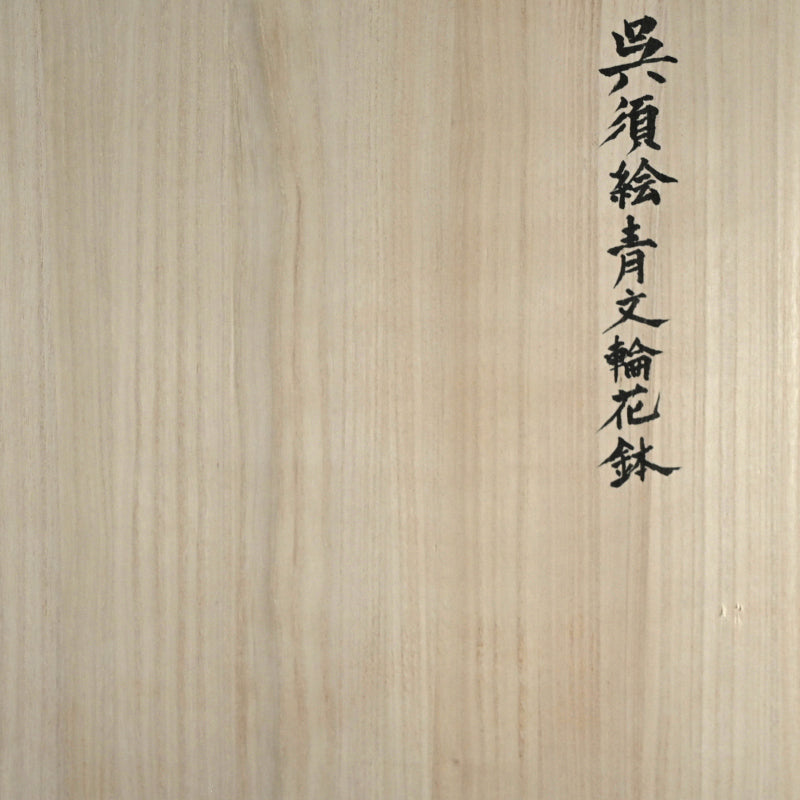 呉須絵青文輪花鉢